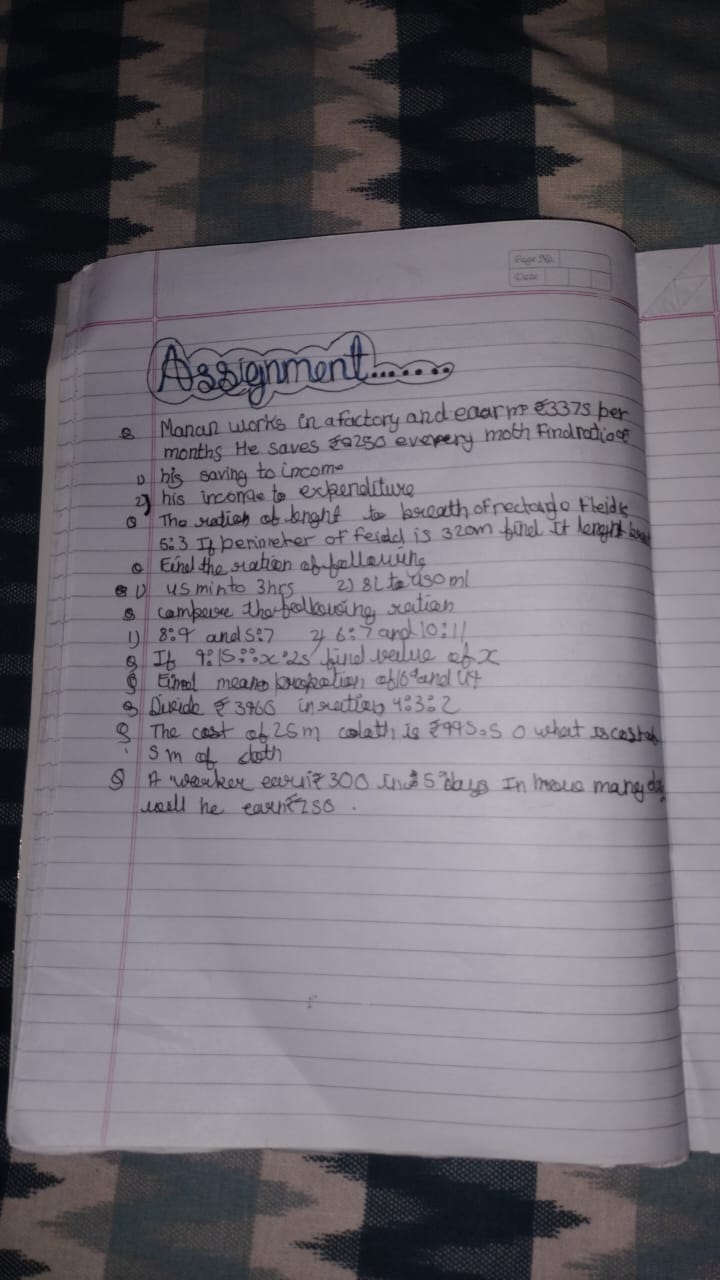 Page No.
Date
Assignment.......
Q Manan works in a factory and eaarn ₹3375 per
months He saves ₹ 250 every moth Find ratio of
1) his saving to income
2) his income to expenditure
Q The ration of lenght to breath of rectangle Field is
5:3 If perimeter of feidd is 320m find It lenght
Q Find the ration of following
Q 1) 45 min to 3hrs 2) 8L to 450 ml
Q compare the following ration
1) 8:9 and 5:7 2) 6:7 and 10:11
Q If 9:15::x:25 find value of x
Q Find mean propotion of 169 and 49
Q Divide ₹ 3960 in ration 4:3:2
Q The cost of 25m coloth is ₹995.50 what is cost of
5m of cloth
Q A worker earn ₹300 in 5 days In how many day
will he earn ₹250.